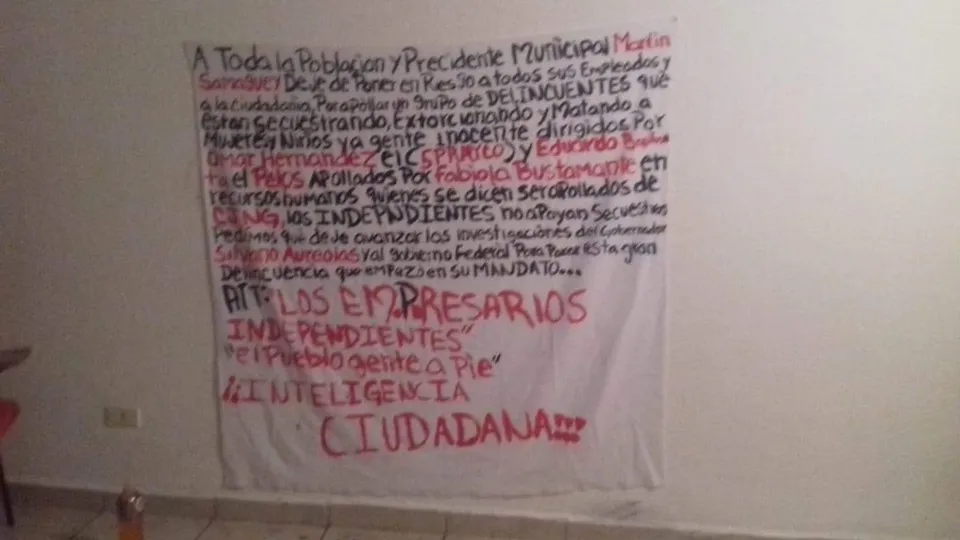 A Toda la Poblacion y Precidente Municipal Martin
Samaguey Deje de Poner en Riesgo a todos sus Empleados y
a la ciudadania, Por apollar un grupo de DELINCUENTES que
estan secuestrando, Extorcionando y Matando a
Mujeres y Niños ya gente inocente dirigidos Por
Omar Hernandez el ( y Eduardo
ta el Pelos Apollados Por Fabiola Bustamante en
recursos humanos quienes se dicen ser apollados de
CJNG, los INDEPNDIENTES no apoyan Secuestros
Pedimos que deje avanzar las investigaciones del Gobernador
Silvano Aureolas y al Gobierno Federal Para Parar esta gran
Delincuencia que empezo en su MANDATO...
ATT: LOS EMPRESARIOS
INDEPENDIENTES"
"el Pueblo gente a Pie"
¡¡INTELIGENCIA
CIUDADANA!!!